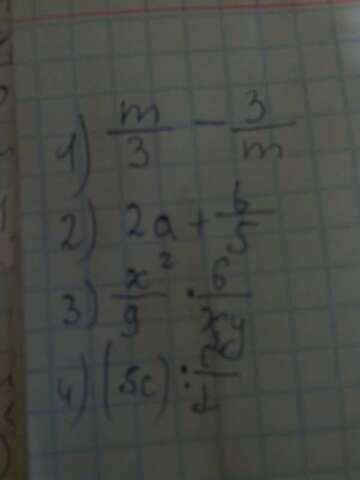 1) m/3 - 3/m
2) 2a + b/5
3) x²/9 · 6/xy
4) (5c) :